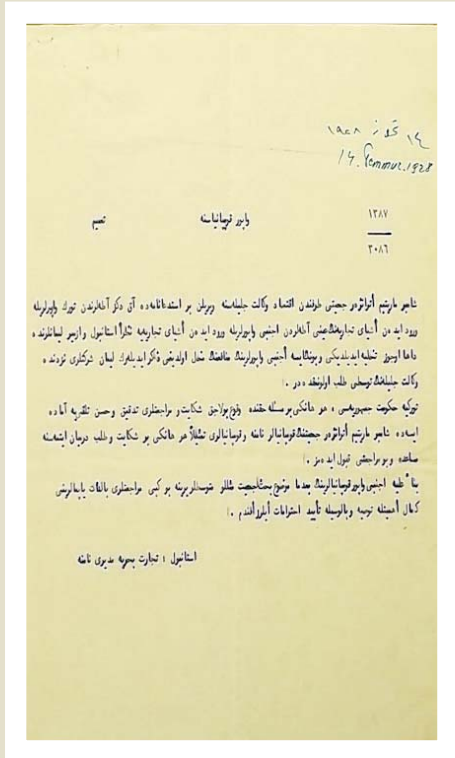 ١٤ تموز ١٩٢٨
14. Temmuz. 1928
١٣٨٧
واپور قومپانیاسنه
تعمیم
٣٠٨٦
شامبر ماریتیم أترانژهر جمعیتی طرفندن اقتصاد وکالت جلیله‌سنه ویریلن بر استدعانامه‌ده آق دکز آغزلرندن تورك واپورلریله
ورود ایده‌ن أشیای تجاریه‌نڭ عینی آغزلردن اجنبی واپورلریله ورود ایده‌ن أشیای تجاریه‌یه نظراً استانبول و ازمیر لیمانلرنده
داها اوجوز تحلیه ایدیلدیکی و بونڭ ایسه أجنبی واپورلرینڭ منافعنه مخل اولدیغی ذکر ایدیله‌رك لیمان شرکتلری نزدنده
وکالت جلیله‌نڭ توسطی طلب اولنمقده‌در .
تورکیه حکومت جمهوریه‌سی ، هر هانکی بر مسئله حقنده وقوع بولاجق شکایت و مراجعتلری تدقیق و حسن تلقی‌یه آماده
ایسه‌ده شامبر ماریتیم أترانژهر جمعیتنڭ قومپانیالر نامنه و قومپانیالری تمثیلاً هر هانکی بر شکایت و طلب درمیان ایتمه‌سنه
مساعده و بو مراجعتی قبول ایده‌مز .
بناءً علیه اجنبی واپور قومپانیالرینڭ بعدما موضوع بحث جمعیت توسطلرینه بو کبی مراجعتلری بالذات یاپمالرینی
کمال أهمیتله توصیه و بالوسیله تأیید احترامات أیلرز أفندم .
استانبول : تجارت بحریه مدیری نامنه